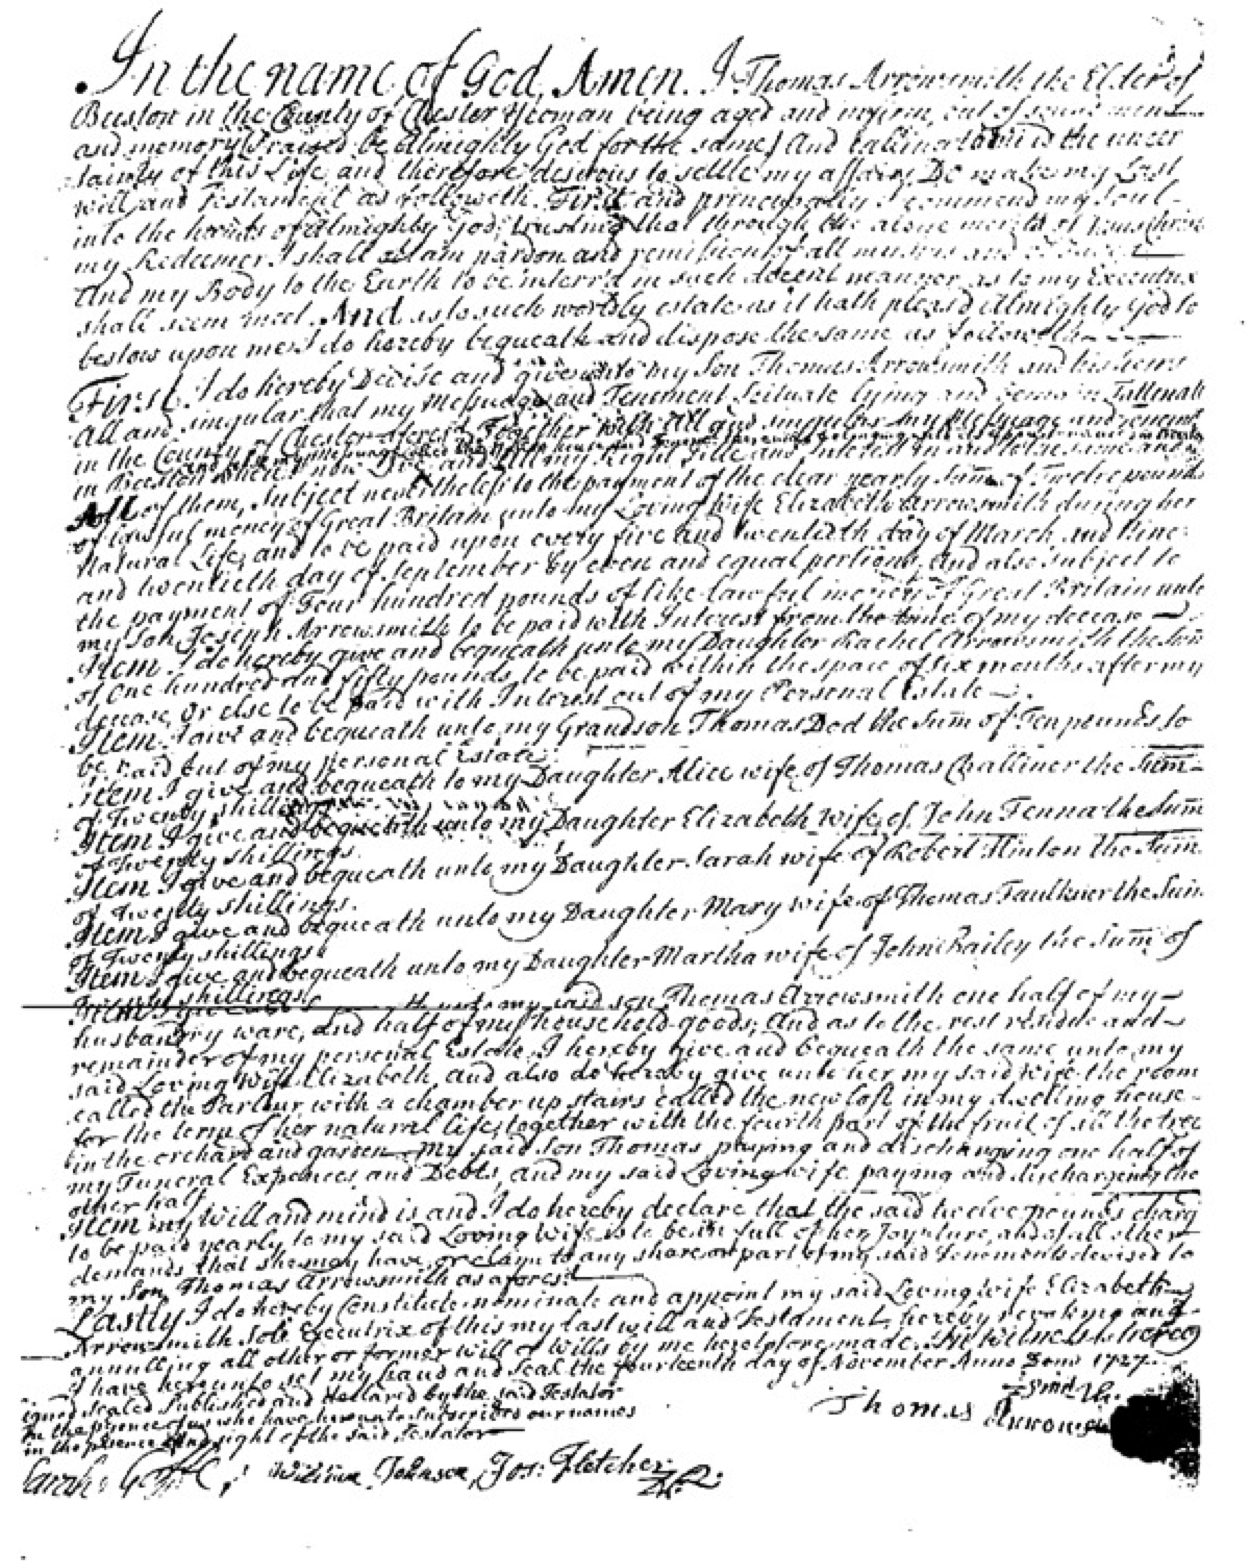 In the name of God, Amen. I Thomas Arrowsmith the Elder of
Beeston in the County of Chester Yeoman being aged and infirm, but of sound mem
and memory (Praised be Almighty God for the same) And taking to the uncer
tainty of this Life, and therefore desirous to settle my affairs Do make my Last
will and Testament as followeth. First and principally I commend my Soul
into the hands of Almighty God, trusting that through the alone merits of
my Redeemer I shall obtain pardon and remission of all my sins and
And my Body to the Earth to be interr'd in such decent manner, as to my Executrix
shall seem meet. And as to such worldly estate as it hath pleas'd Almighty God to
bestow upon me I do hereby bequeath and dispose the same as followeth
First, I do hereby Devise and give unto my Son Thomas Arrowsmith and his heirs
All and singular that my Messuage and Tenement Scituate lying and being in Tattenall
in the County of Chester aforesd. Together with All and singular my Messuage and tenemt
in Beeston where I now live and All my Right Title and Interest in and to the same and
All of them, Subject nevertheless to the payment of the clear yearly Sum of Twelve pounds
of lawful money of Great Britain unto my Loving Wife Elizabeth Arrowsmith during her
Natural Life, and to be paid upon every five and twentieth day of March and Nine
and twentieth day of September by even and equal portions, and also subject to
the payment of Four hundred pounds of like lawful money of Great Britain unto
my Son Joseph Arrowsmith to be paid with Interest from the time of my decease
Item. I do hereby give and bequeath unto my Daughter Rachel Arrowsmith the Sum
of One hundred and fifty pounds, to be paid within the space of six months after my
decease, or else to be paid with Interest out of my Personal Estate
Item. I give and bequeath unto my Grandson Thomas Dod the Sum of Ten pounds to
be paid out of my personal Estate.
Item I give and bequeath to my Daughter Alice wife of Thomas Challiner the Sum
of Twenty shillings
Item I give and bequeath unto my Daughter Elizabeth wife of John Fenna the Sum
of Twenty shillings.
Item I give and bequeath unto my Daughter Sarah wife of Robert Minton the Sum
of Twenty shillings.
Item I give and bequeath unto my Daughter Mary wife of Thomas Faulkner the Sum
of Twenty shillings
Item I give and bequeath unto my Daughter Martha wife of John Bailey the Sum of
Twenty shillings
unto my said son Thomas Arrowsmith one half of my
husbandry ware, and half of my household goods; And as to the rest residue and
remainder of my personal Estate, I hereby give and bequeath the same unto my
said Loving Wife Elizabeth, and also do hereby give unto her my said wife the room
called the Parlour with a chamber up stairs called the new loft in my dwelling house
for the term of her natural life, together with the fourth part of the fruit of all the trees
in the orchard and garden my said Son Thomas paying and discharging one half of
my Funeral Expences, and Debts, and my said Loving wife paying and discharging the
other half
Item my Will and mind is and I do hereby declare that the said twelve pounds charg
to be paid yearly to my said Loving Wife is to be in full of her Joynture, and of all other
demands that she may have, or claim to any share or part of my said Tenements devised to
my Son Thomas Arrowsmith as aforesd.
Lastly I do hereby Constitute nominate and appoint my said Loving Wife Elizabeth
Arrowsmith Sole Executrix of this my last will and Testament, hereby revoking and
annulling all other or former will or wills by me heretofore made. In Witness whereof
I have hereunto set my hand and Seal the fourteenth day of November Anno Domi 1727
igned sealed Published and declared by the said Testator
In the presence of us who have hereunto subscribed our names
in the presence and sight of the said Testator
Thomas Arrowsmi
Sarah William Johnson, Jos: Fletcher